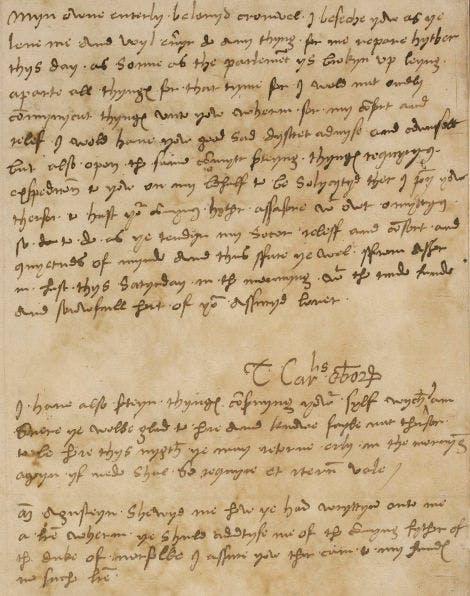 Myn owne enterly belovyd Cromwel I beseche yow as ye
love me and wyl evyr do any thyng for me repare hyther
thys day as sone as the parlement ys brokyn up leyng
aparte all thyngs for that tyme for I wold nat onely
commynycat thyngs unto yow wherin for my cõfort and
relef I wold have yowr good sad dyscret advyse and counsell
but also opon the same cõmytt serteyng thyngs requyryng
expedicõn to yow on my behalf to be solycytyd I pray yow
therfor to hast yor cõmyng hyther assafore wt owt omyttyng
so to do as ye tendyr my socor releff and cõfort and
quyetnes of mynde And thus fare ye wel from Asher
in hast thys Satyrday in the mornyng wt the rude hande
and sorowfull hert of yor assuryd lover
T. Carlis Ebor
I have also serteyn thyngs cõsernyng yowr sylf wych I am
suere ye wolbe glad to here and knowe fayle nat therfor
to be here thys nygth ye may retorne erly in the mornyng
ageyn yf nede shul so requyre et iterum vale
M Agusteyn shewyd me how ye had wryttyn onto me
a lrẽ wherin ye shuld advertyse me of the cõmyng hyther of
the duke of Norfolke I assure yow ther cam to my hands
no suche lrẽ